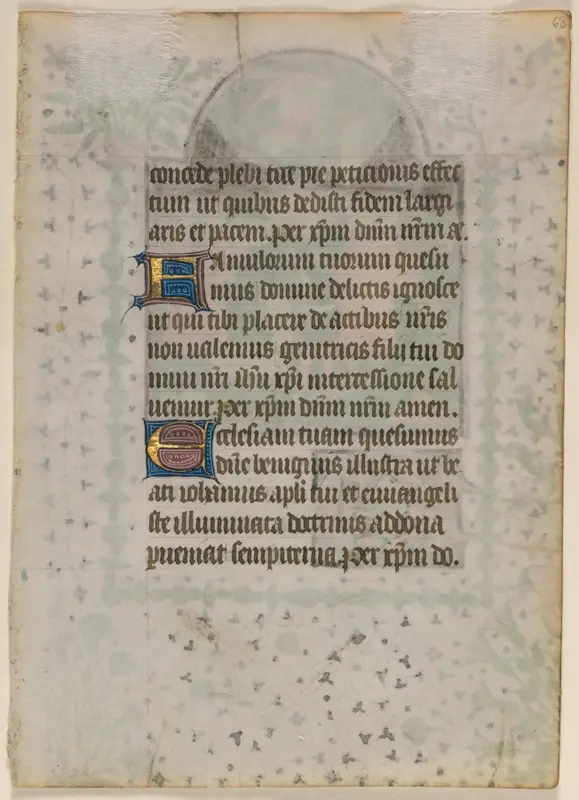 68
concede plebi tue pie peticionis effec
tum ut quibus dedisti fidem largi
aris et pacem. per xp̄m dn̄m nr̄m a.
Famulorum tuorum quesu
mus domine delictis ignosce
ut qui tibi placere de actibus nr̄is
non ualemus genitricis filij tui do
mini nr̄i ih̄u xp̄i intercessione sal
uemur. per xp̄m dn̄m nr̄m amen.
Ecclesiam tuam quesumus
dn̄e benignus illustra ut be
ati iohannis apl̄i tui et euuangeli
ste illuminata doctrinis ad dona
pueniat sempiterna. per xp̄m do.